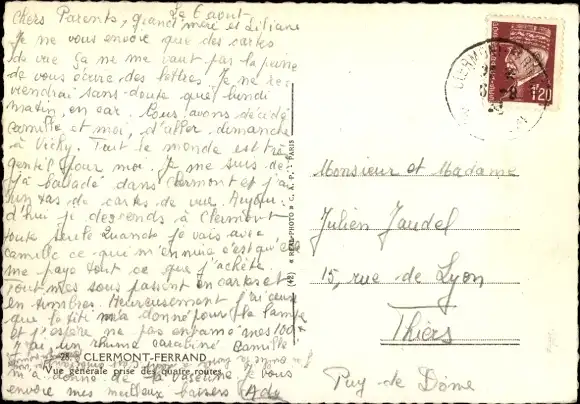 Le 6 aout-
Chers Parents, grand'mère et Liliane
Je ne vous envoie que des cartes
de vue ça ne me vaut pas la peine
de vous écrire des lettres. Je ne re
viendrai sans doute que lundi
matin, en car. Nous avons décidé
Camille et moi, d'aller dimanche
à Vichy. Tout le monde est très
gentil pour moi. Je me suis dé
jà baladé dans Clermont et j'ai
un tas de cartes de vue. Aujour
d'hui je descends à Clermont
toute seule Quand je vais avec
Camille ce qui m'ennuie c'est qu'elle
me paye tout ce que j'achète.
Tout mes sous passent en cartes et
en timbres. Heureusement j'ai ceux
que la titi m'a donné pour la lampe
et j'espère ne pas entamé mes 100
J'ai un rhume carabiné Camille
m'a donné de la vaseline Je vous
envoie mes meilleurs baisers Ade
28. CLERMONT-FERRAND
Vue générale prise des quatre routes
(48) ® REAL-PHOTO C. A. P. PARIS
1F20
Monsieur et Madame
Julien Jaudel
15, rue de Lyon
Thiers
Puy de Dôme